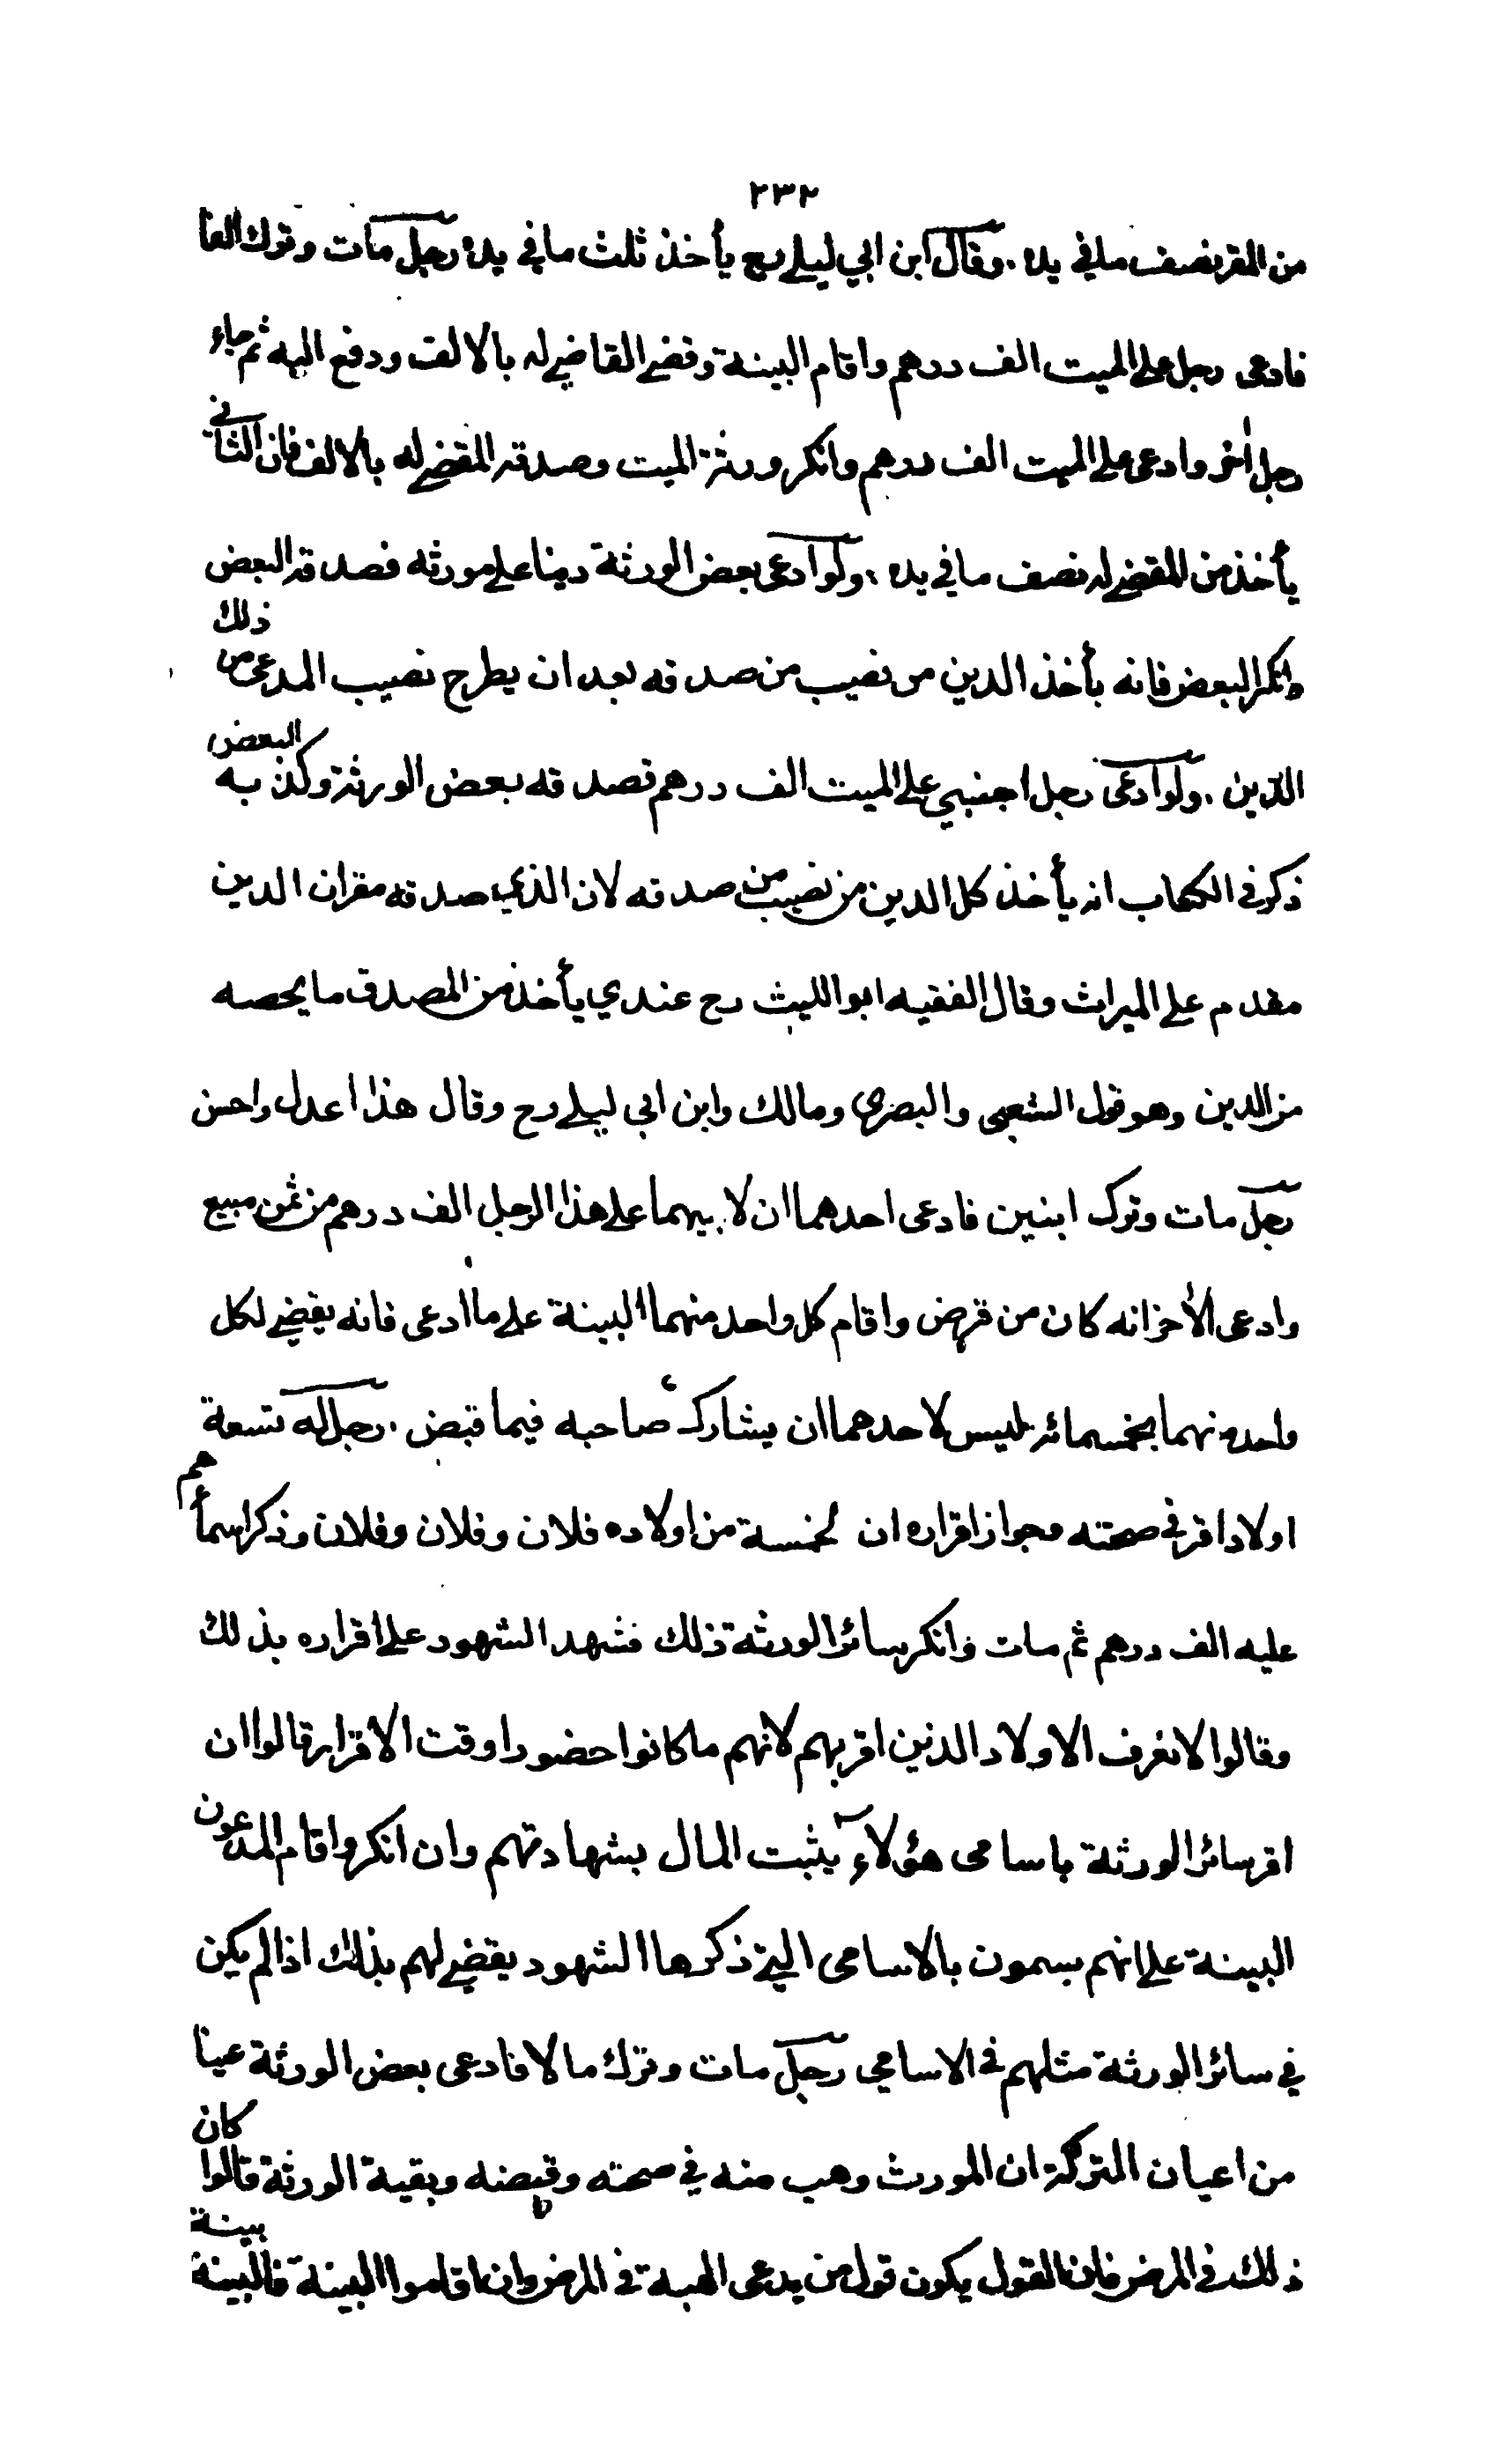 ٢٣٢
من المقر نصف ما في يده . وقال ابن ابي ليلے رح يأخذ ثلث ما في يده رجل مات وترك الفا
فادعى رجل علے الميت الف درهم واقام البينة وقضے القاضے له بالالف ودفع اليه ثم جاء
رجل اٰخر وادعى علے الميت الف درهم وانكر ورثة الميت وصدقه المقضے له بالالف فان الثاني
يأخذ من المقضے له نصف ما في يده ، ولو ادعى بعض الورثة دينا علے مورثه فصدقه البعض
وانكر البعض فانه يأخذ الدين من نصيب من صدقه بعد ان يطرح نصيب المدعى من ذلك
الدين . ولو ادعى رجل اجنبي علے الميت الف درهم فصدقه بعض الورثة وكذبه البعض
ذكر في الكتاب انه يأخذ كل الدين من نصيب من صدقه لان الذي صدقه مقر ان الدين
مقدم علے الميراث وقال الفقيه ابو الليث رح عندي يأخذ من المصدق ما يخصه
من الدين وهو قول الشعبى والبصرى ومالك وابن ابى ليلے رح وقال هذا اعدل واحسن
رجل مات وترك ابنين فادعى احدهما ان لابيهما علے هذا الرجل الف درهم من ثمن مبيع
وادعى الاٰخر انه كان من قرض واقام كل واحد منهما البينة علے ما ادعى فانه يقضے لكل
واحد منهما بخمسمائة ليس لاحدهما ان يشارك صاحبه فيما قبض . رجل له تسعة
اولاد اقر في صحته وجواز اقراره ان لخمسة من اولاده فلان وفلان وفلان وذكر اسمأهم
عليه الف درهم ثم مات وانكر سائر الورثة ذلك فشهد الشهود علے اقراره بذلك
وقالوا لا نعرف الاولاد الذين اقر بهم لانهم ما كانوا حضورا وقت الاقرار قالوا ان
اقر سائر الورثة باسامى هؤلاء يثبت المال بشهادتهم وان انكروا واقام المدعون
البينة علے انهم يسمون بالاسامى التے ذكرها الشهود يقضے لهم بذلك اذا لم يكن
في سائر الورثة مثلهم في الاسامي رجل مات وترك مالا فادعى بعض الورثة عينا
من اعيان التركة ان المورث وهب منه في صحته وقبضه وبقية الورثة قالوا كان
ذلك في المرض فان القول يكون قول من يدعى الهبة في المرض وان اقاموا البينة فالبينة بينة